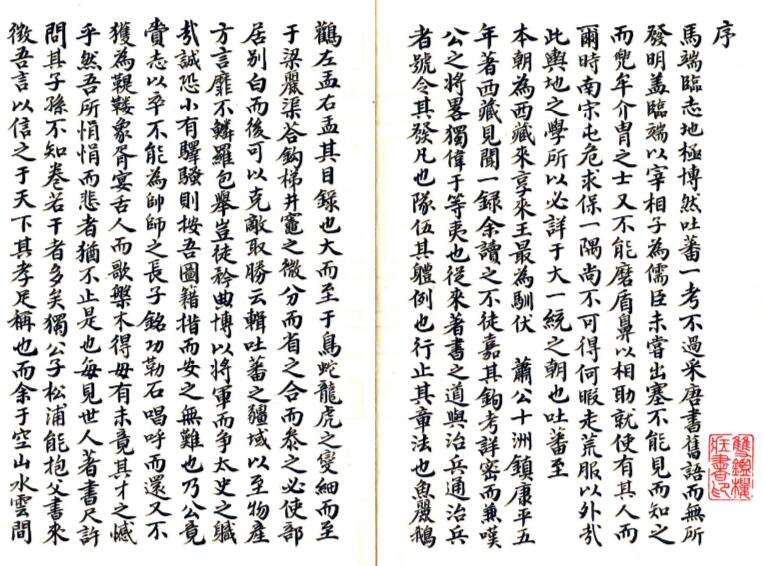 序
馬端臨志地極博然吐蕃一考不過采唐書舊語而無所
發明盖臨端以宰相子為儒臣未嘗出塞不能見而知之
而兜牟介胄之士又不能磨盾鼻以相助就使有其人而
爾時南宋屯危求保一隅尚不可得何暇走荒服以外㢤
此輿地之學所以必詳于大一統之朝也吐蕃至
本朝為西藏來享來王最為馴伏 蕭公十洲鎮康平五
年著西藏見聞一録余讀之不徒嘉其鉤考詳密而兼嘆
公之將畧獨偉于等夷也從來著書之道與治兵通治兵
者號令其發凡也隊伍其軆例也行止其章法也魚麗鵝
鸛左盂右盂其目録也大而至于鳥蛇龍虎之變細而至
于梁麗渠荅鈎梯井竈之微分而省之合而叅之必使部
居别白而後可以克敵取勝云輯吐蕃之疆域以至物産
方言靡不鱗羅包舉豈徒矜曲博以將軍而爭太史之軄
㢤誠恐小有驛騷則按吾圖籍揩而安之無難也乃公竟
賫志以卒不能為帥師之長子銘功勒石唱呼而還又不
獲為鞮鞻象胥宴舌人而歌槃木得毋有未竟其才之憾
乎然吾所悁悁而悲者猶不止是也每見世人著書尺許
問其子孫不知卷若干者多矣獨公子松浦能抱父書來
徵吾言以信之于天下其孝足稱也而余于空山水雲間
雙鑑樓
藏書印